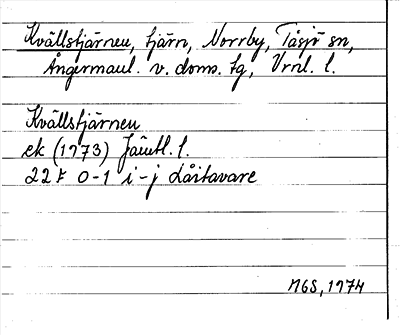 Kvällstjärnen, tjärn, Norrby, Tåsjö sn,
Ångermanl. v. doms. tg, Vrnl. l.
Kvällstjärnen
ek (1973) Jämtl. l.
22 F 0-1 i-j Låitavare
MGS, 1974